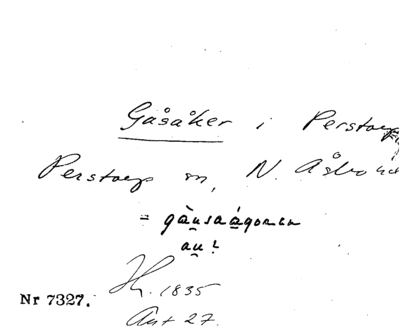 Gåsåker i Perstorp
Perstorp sn, N. Åsbo hd
= gàu̯saágoren
au̯!
Nr 7327.
1835
Ant 27.